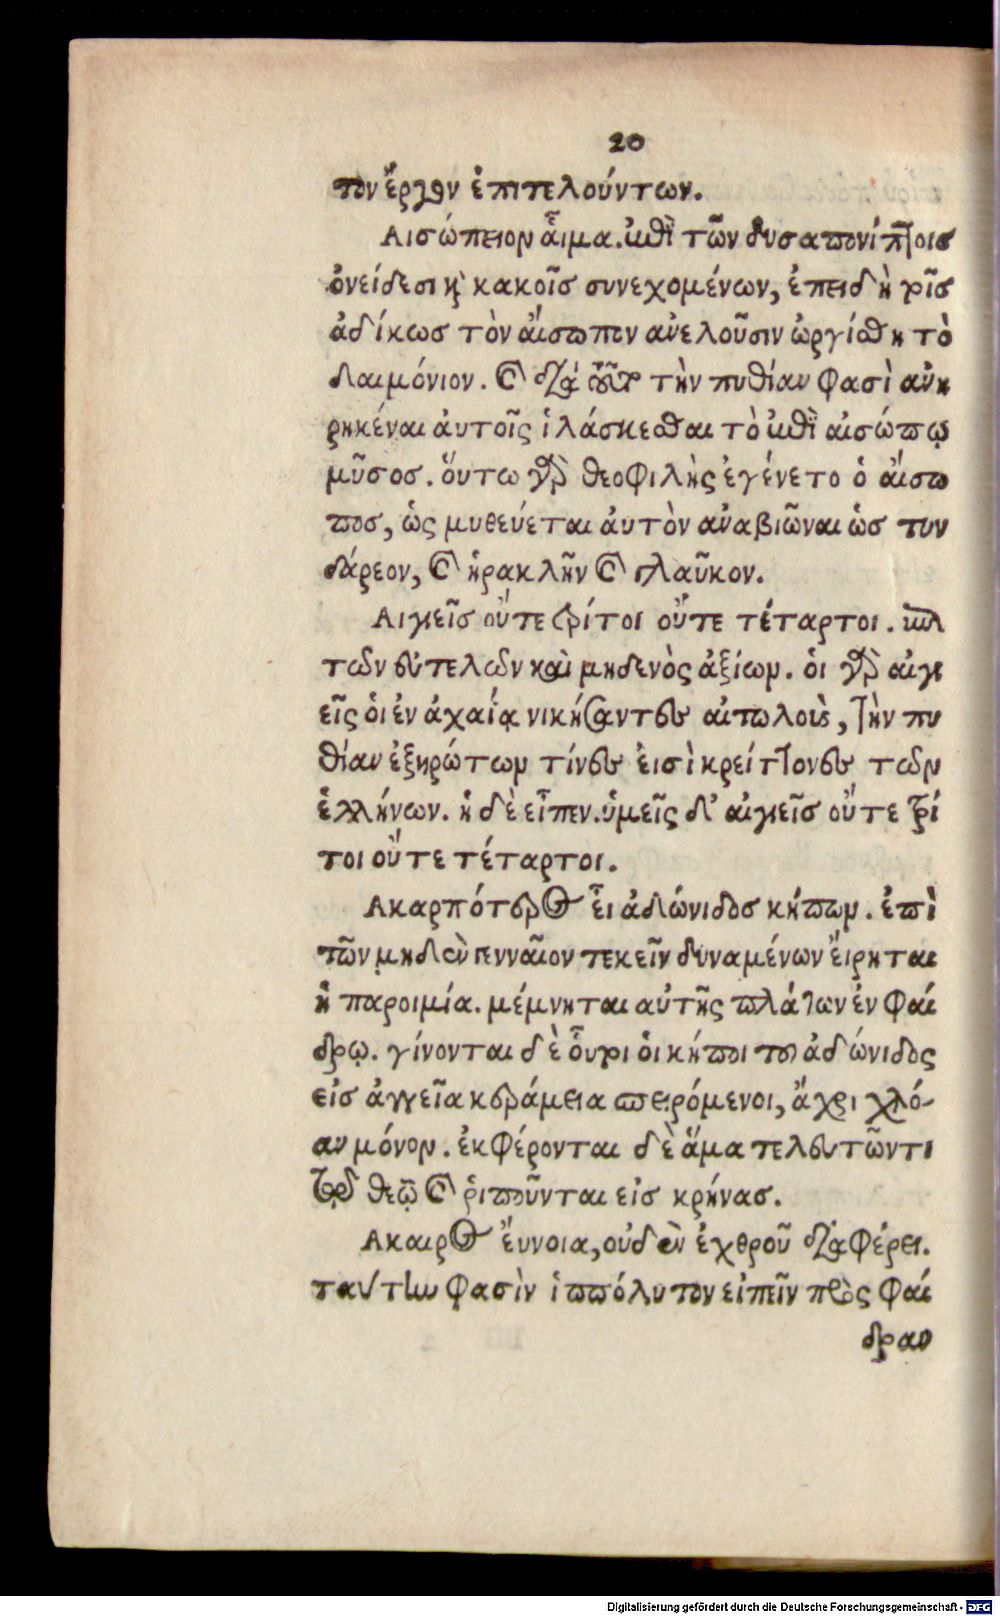 20
τον ἔργον ἐπιτελούντων.
Αἰσώπειον αἷμα. ἐπὶ τῶν δυσαπονίπτοις
ὀνείδεσι καὶ κακοῖς συνεχομένων, ἐπειδὴ τοῖς
ἀδίκως τὸν αἴσωπον ἀνελοῦσιν ὠργίσθη τὸ
δαιμόνιον. καὶ διὰ τοῦτο τὴν πυθίαν φασὶ ἀνη
ρηκέναι ἀυτοῖς ἱλάσκεσθαι τὸ ἐπὶ αἰσώπῳ
μῦσος. ὅυτω γὰρ θεοφιλὴς ἐγένετο ὁ αἴσω
πος, ὡς μυθεύεται ἀυτὸν ἀναβιῶναι ὡς τυν
δάρεον, καὶ ἡρακλῆν καὶ γλαῦκον.
Αἰγιεῖς οὔτε τρίτοι οὔτε τέταρτοι. ἐπὶ
τῶν εὐτελῶν καὶ μηδενὸς ἀξίων. ὁι γὰρ αἰγι
εῖς ὁι ἐν ἀχαΐᾳ νικήσαντες αἰτωλοὺς, τὴν πυ
θίαν ἐξηρώτων τίνες ἐισὶ κρείττονες τῶν
ἑλλήνων. ἡ δὲ εἶπεν. ὑμεῖς δ' αἰγιεῖς οὔτε τρί
τοι οὔτε τέταρτοι.
Ακαρπότερος εἶ ἀδώνιδος κήπων. ἐπὶ
τῶν μηδὲν γενναῖον τεκεῖν δυναμένων ἔιρηται
ἡ παροιμία. μέμνηται αὐτῆς πλάτων ἐν φαί
δρῳ. γίνονται δὲ οὗτοι ὁι κήποι τοῦ ἀδώνιδος
εἰς ἀγγεῖα κεράμεια σπειρόμενοι, ἄχρι χλό-
αν μόνον. ἐκφέρονται δὲ ἅμα τελευτῶντι
τῷ θεῷ καὶ ῥιποῦνται εἰς κρήνας.
Ακαιρος ἔυνοια, οὐδὲν ἐχθροῦ διαφέρει.
ταύτην φασὶν ἱππόλυτον εἰπεῖν πρὸς φαί
δραν
Digitalisierung gefördert durch die Deutsche Forschungsgemeinschaft - DFG